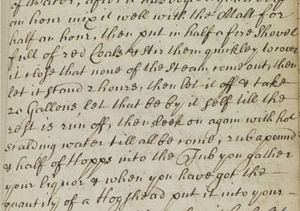 an hour mix it well with the Malt for
half an hour, then put in half a fire shovel
full of red Coals & stir them quickley to rower
it close that none of the steam come out, then
let it stand 2 hours, then let it off & take
20 Gallons let that be by it self till the
rest is run off, then sleek on again with hot
scalding water till all be come, rub a pound
& half of Hopps into the Tub you gather
your liquor & when you have got the
quantity of a Hogshead put it into your